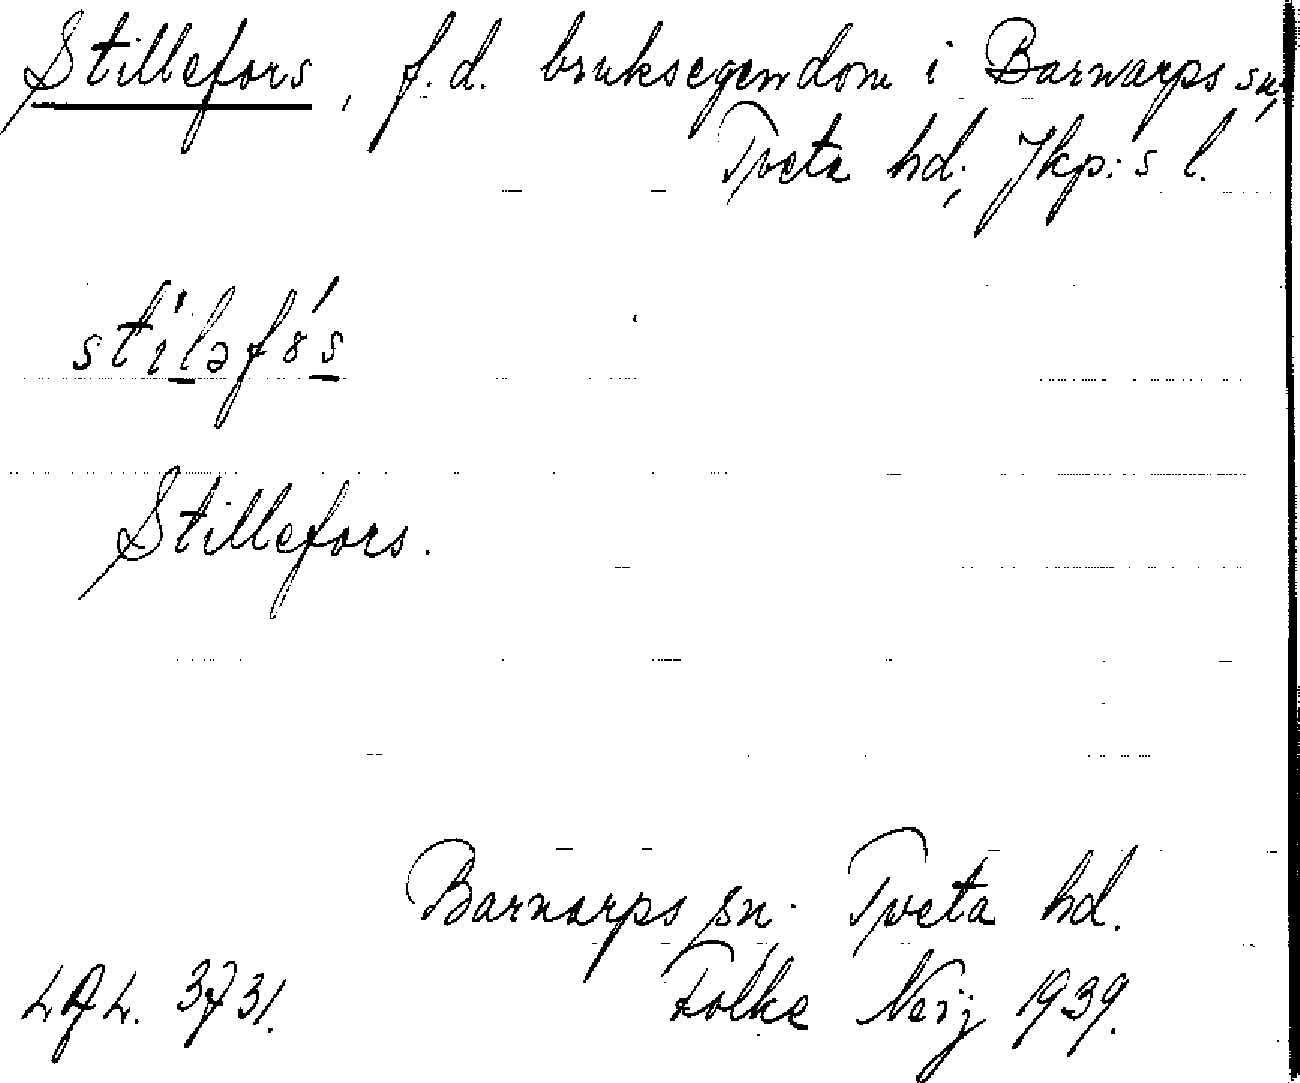 Stillefors, f.d. bruksegendom i Barnarps sn,
Tveta hd; Jkp:s l.
stiləfo's
Stillefors.
Barnarps sn. Tveta hd.
3731. Folke Neij 1939.